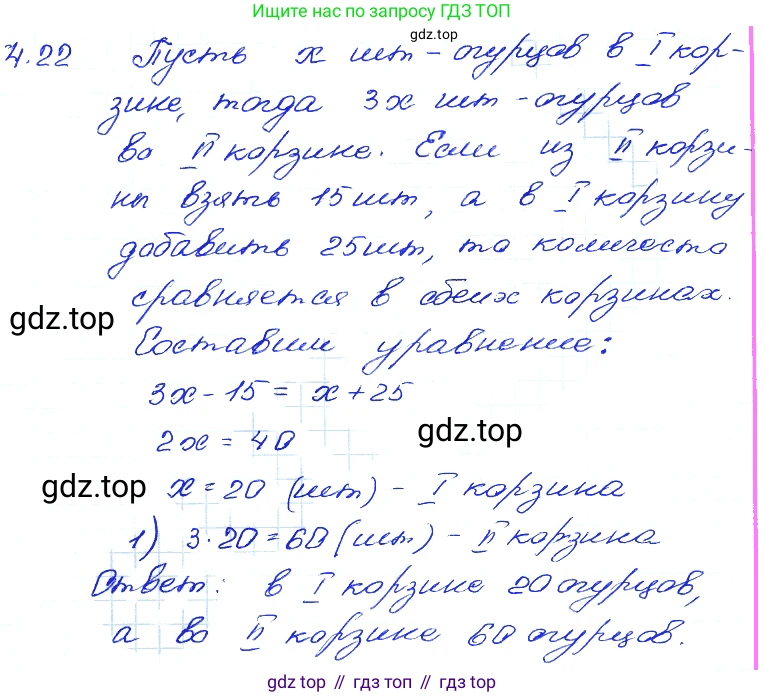 Ищите нас по запросу ГДЗ ТОП
gdz.top
4.22 Пусть x шт - огурцов в I кор-
зине, тогда 3x шт - огурцов
во II корзине. Если из II корзи-
ны взять 15 шт, а в I корзину
добавить 25 шт, то количесто
сравняется в обеих корзинах.
gdz.top
Составим уравнение:
3x - 15 = x + 25
2x = 40
gdz.top
gdz.top
x = 20 (шт) - I корзина
1) 3·20 = 60 (шт) - II корзина
Ответ: в I корзине 20 огурцов,
а во II корзине 60 огурцов.
gdz.top // гдз топ // gdz.top // гдз топ